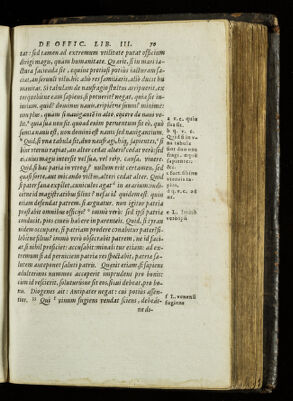 DE OFFIC. LIB. III. 70
tat: sed tamen ad extremum vtilitate putat officium
dirigi magis, quàm humanitate. Quærit, si in mari ia-
ctura facienda sit, equine pretiosi potius iacturam fa-
ciat, an seruuli vilis: hic alio res familiaris, alio ducit hu
manitas. Si tabulam de naufragio stultus arripuerit, ex
torquebitne eam sapiens, si potuerit? negat, quia sit in-
iurium. quid? dominus nauis, eripietne suum? minimè:
non plus, quàm si nauigantē in alto, eijcere de naui ve-
lit, quia sua non sit. quoad enim peruentum sit eò, quò
sumta nauis est, non domini est nauis, sed nauigantium.
Quid, si vna tabula sit, duo naufragi, hiq. sapientes,
sibine vterque rapiat, an alter cedat alteri? cedat verò: sed
ei, cuius magis intersit vel sua, vel reip. causa, viuere.
Quid, si hæc paria in vtroq? nullum erit certamen, sed
quasi sorte, aut micando victus, alteri cedat alter. Quid
si pater fana expilet, cuniculos agat in ærarium: indi-
cetne id magistratibus filius? nefas id quidem est. quin
etiam defendat patrem, si arguatur. non igitur patria
præstabit omnibus officijs? immò verò: sed ipsi patriæ
conducit, pios ciueis habere in parenteis. Quid, si tyran
nidem occupare, si patriam prodere conabitur pater? si-
lebitne filius? immò verò obsecrabit patrem, ne id faci-
at: si nihil proficiet: accusabit: minabitur etiam: ad ex-
tremum si ad perniciem patriæ res spectabit, patriæ sa-
lutem anteponet saluti patris. Quærit etiam si sapiens
adulterinos nummos acceperit imprudens pro bonis:
cum id rescierit, soluturúsne sit eos, si cui debeat, pro bo-
nis. Diogenes ait: Antipater negat: cui potius assen-
tior. Qui vinum fugiens vendat sciens, debeát-
ne di-
f L. vinum
fugiens